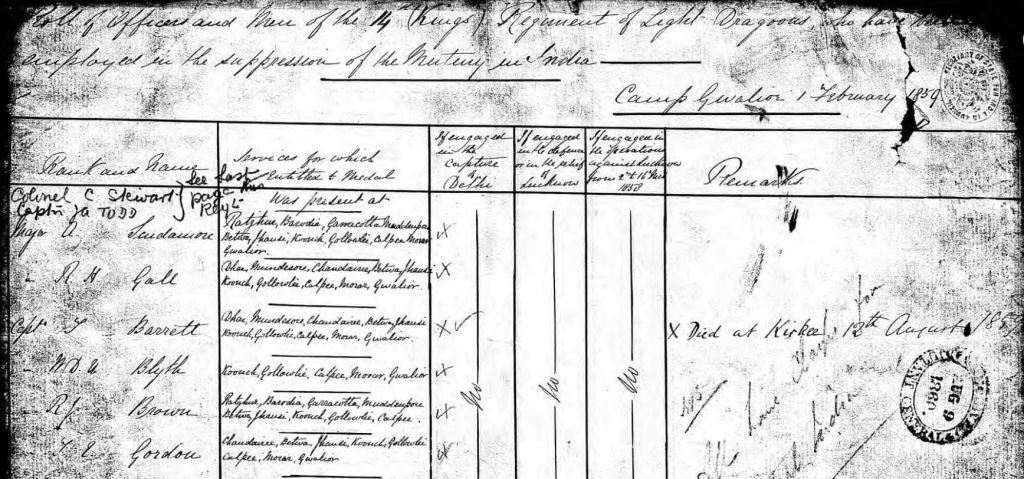 Roll of Officers and Men of the 14th (Kings) Regiment of Light Dragoons, who have been
employed in the suppression of the Mutiny in India
Camp Gwalior 1 February 1859
Rank and Name
Services for which
Entitled to Medal
If engaged
in the
capture
of
Delhi
If engaged
in the defence
or in the relief
of
Lucknow
If engaged in
the operations
against Lucknow
from 2nd to 16th
1858
Remarks
Colonel C Steuart
Captn Ja TODD
See last
page this
Regt
Was present at
Major A Scudamore
Ratghur, Barodia, Garracotta, Muddenpore
Betwa, Jhansi, Koonch, Gollowlie, Calpee, Morar
Gwalior.
" R H Gall
Dhar, Mundesore, Chandairee, Betwa, Jhansi
Koonch, Gollowlie, Calpee, Morar, Gwalior.
Capt T Barrett
Dhar, Mundesore, Chandairee, Betwa, Jhansi
Koonch, Gollowlie, Calpee, Morar, Gwalior.
X Died at Kirkee, 12th August 185
" W.D.A Blyth
Koonch, Gollowlie, Calpee, Morar, Gwalior
" R J Brown
Ratghur, Barodia, Garracotta, Muddenpore
Betwa, Jhansi, Koonch, Gollowlie, Calpee
" T. E Gordon
Chandairee, Betwa, Jhansi, Koonch, Gollowlie
Calpee, Morar, Gwalior
No
No
No
AUG 9
1860